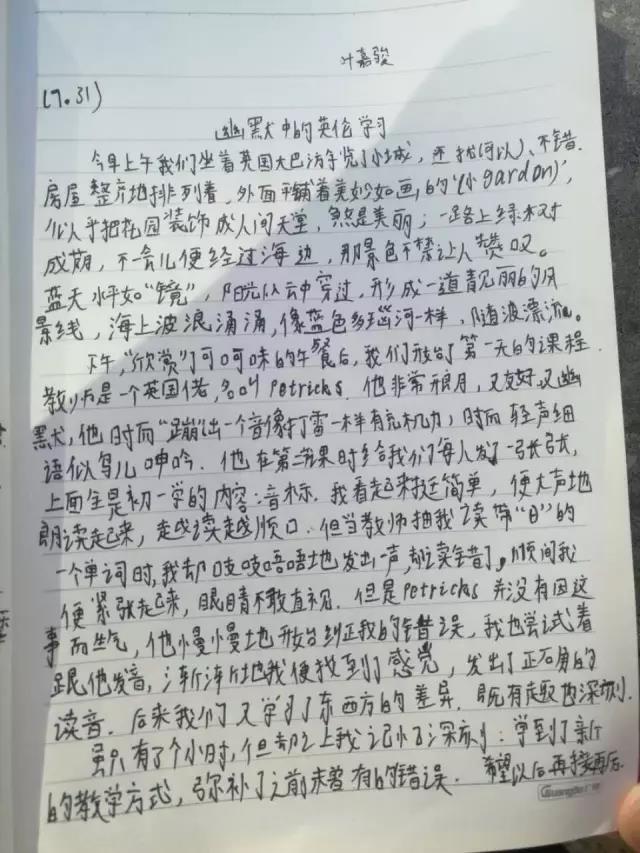 叶嘉骏
(7.31)
幽默中的英伦学习
今早上午我们坐着英国大巴游览了小城，还挺(可以)、不错.
房屋整齐地排列着，外面平铺着美妙如画的"(小garden)",
似乎把花园装饰成人间天堂，煞是美丽；一路上绿树对
成荫，不会儿便经过海边，那景色不禁让人赞叹。
蓝天水平如"镜"，阳光从云中穿过，形成一道靓丽的风
景线，海上波浪涌涌，像蓝色多瑙河一样，随波漂流。
下午，"欣赏"了可口可味的午餐后，我们开始了第一天的课程.
教师是一个英国佬，名叫Petricks. 他非常 ，又友好又幽
默，他时而"蹦"出一个音像打雷一样有充机力，时而轻声细
语似鸟儿呻吟. 他在第一节课时给我们每人发了一张长长，
上面全是初一学的内容：音标. 我看起来挺简单，便大声地
朗读起来，越读越顺口. 但当教师抽我读带"θ"的
一个单词时，我却吱吱唔唔地发出一声，却读错了。瞬间我
便紧张起来，眼睛不敢直视. 但是Petricks并没有因这
事而生气，他慢慢地开始纠正我的错误，我也尝试着
跟他发音，渐渐地我便找到了感觉，发出了正确的
读音. 后来我们又学习了东西方的差异. 既有趣也深刻.
虽只有了个小时，但却让我记忆深刻：学到了新
的教学方式，弥补了之前未曾有的错误. 希望以后再接再厉.
Guangbo 广博